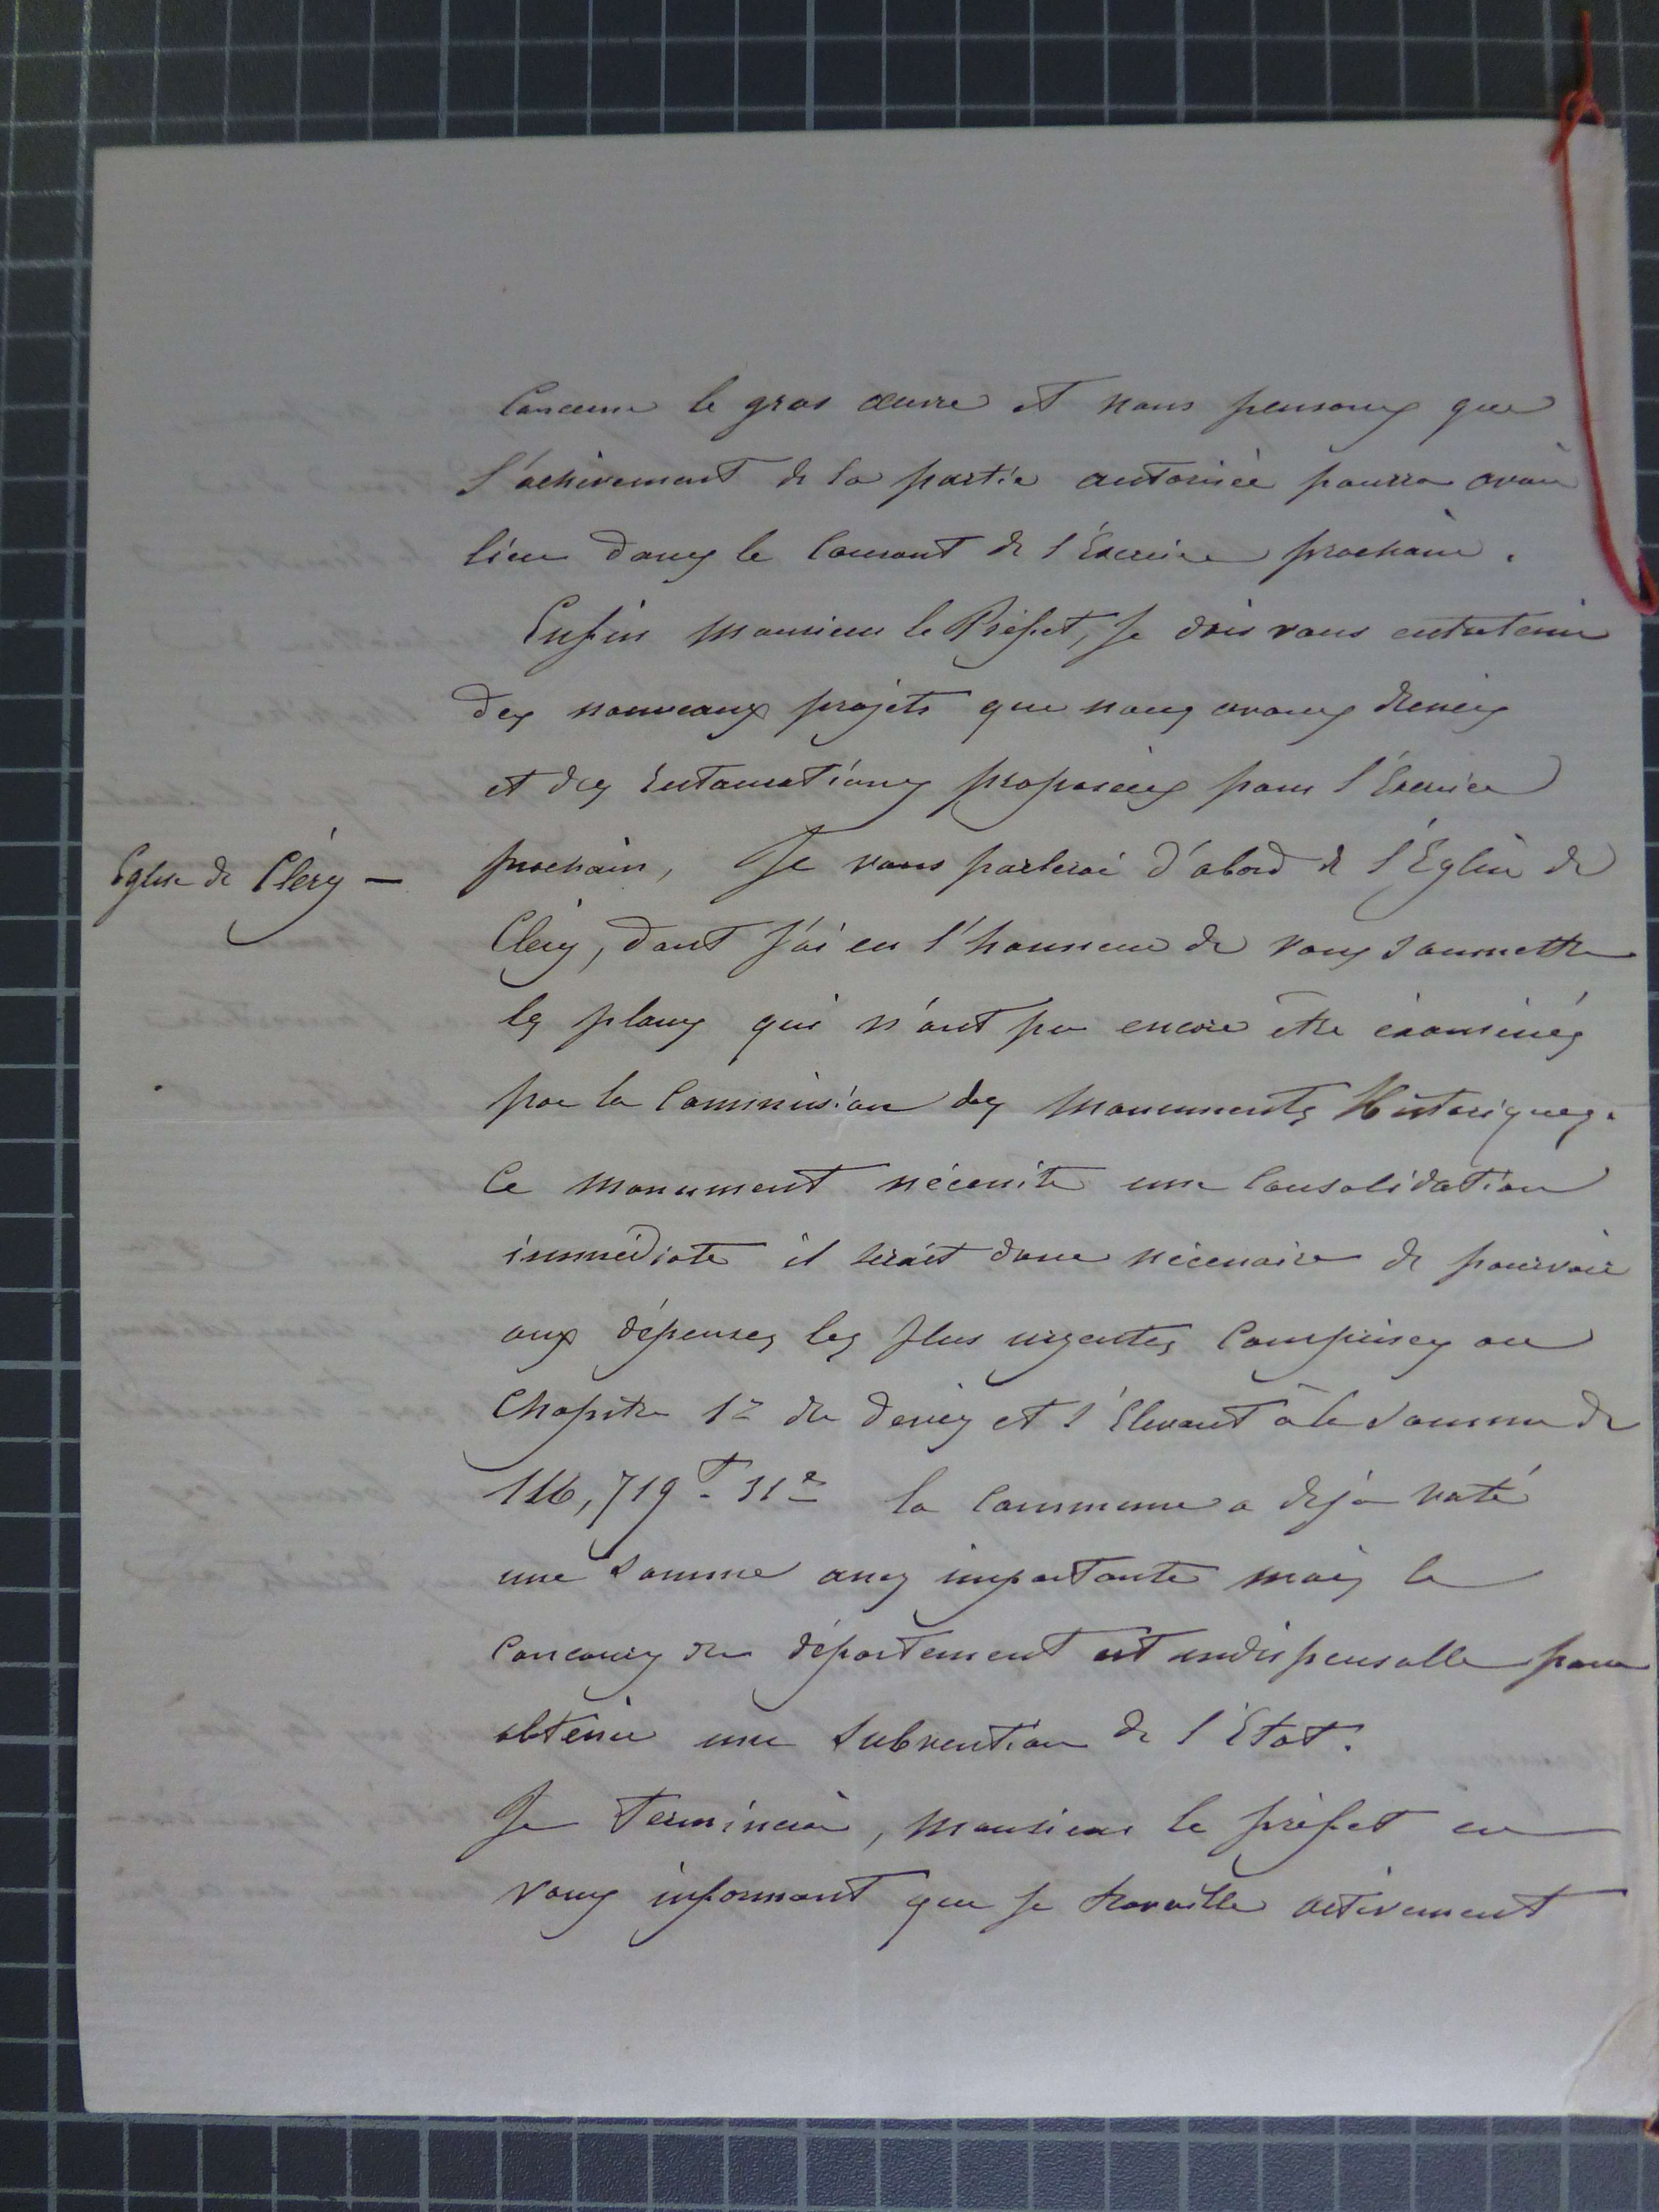 Concerne le gros œuvre et nous pensons que
l'achèvement de la partie autorisée pourra avoir
lieu dans le Courant de l'Exercice prochain.
Enfin Monsieur le Préfet, Je dois vous entretenir
des nouveaux projets que nous avons dressés
et des restaurations proposées pour l'Exercice
Eglise de Cléry —
prochain, Je vous parlerai d'abord de l'Eglise de
Cléry, dont J'ai eu l'honneur de vous soumettre
les plans qui n'ont pu encore être examinés
par la Commission des Monuments Historiques.
Ce Monument nécessite une Consolidation
immédiate il serait donc nécessaire de pourvoir
aux dépenses les plus urgentes Comprises au
Chapitre 1er du devis et s'élevant à la somme de
la Commune a déjà voté
une somme assez importante mais le
Concours du département est indispensable pour
obtenir une Subvention de l'Etat.
Je Terminerai, Monsieur le préfet en
vous informant que Je travaille activement